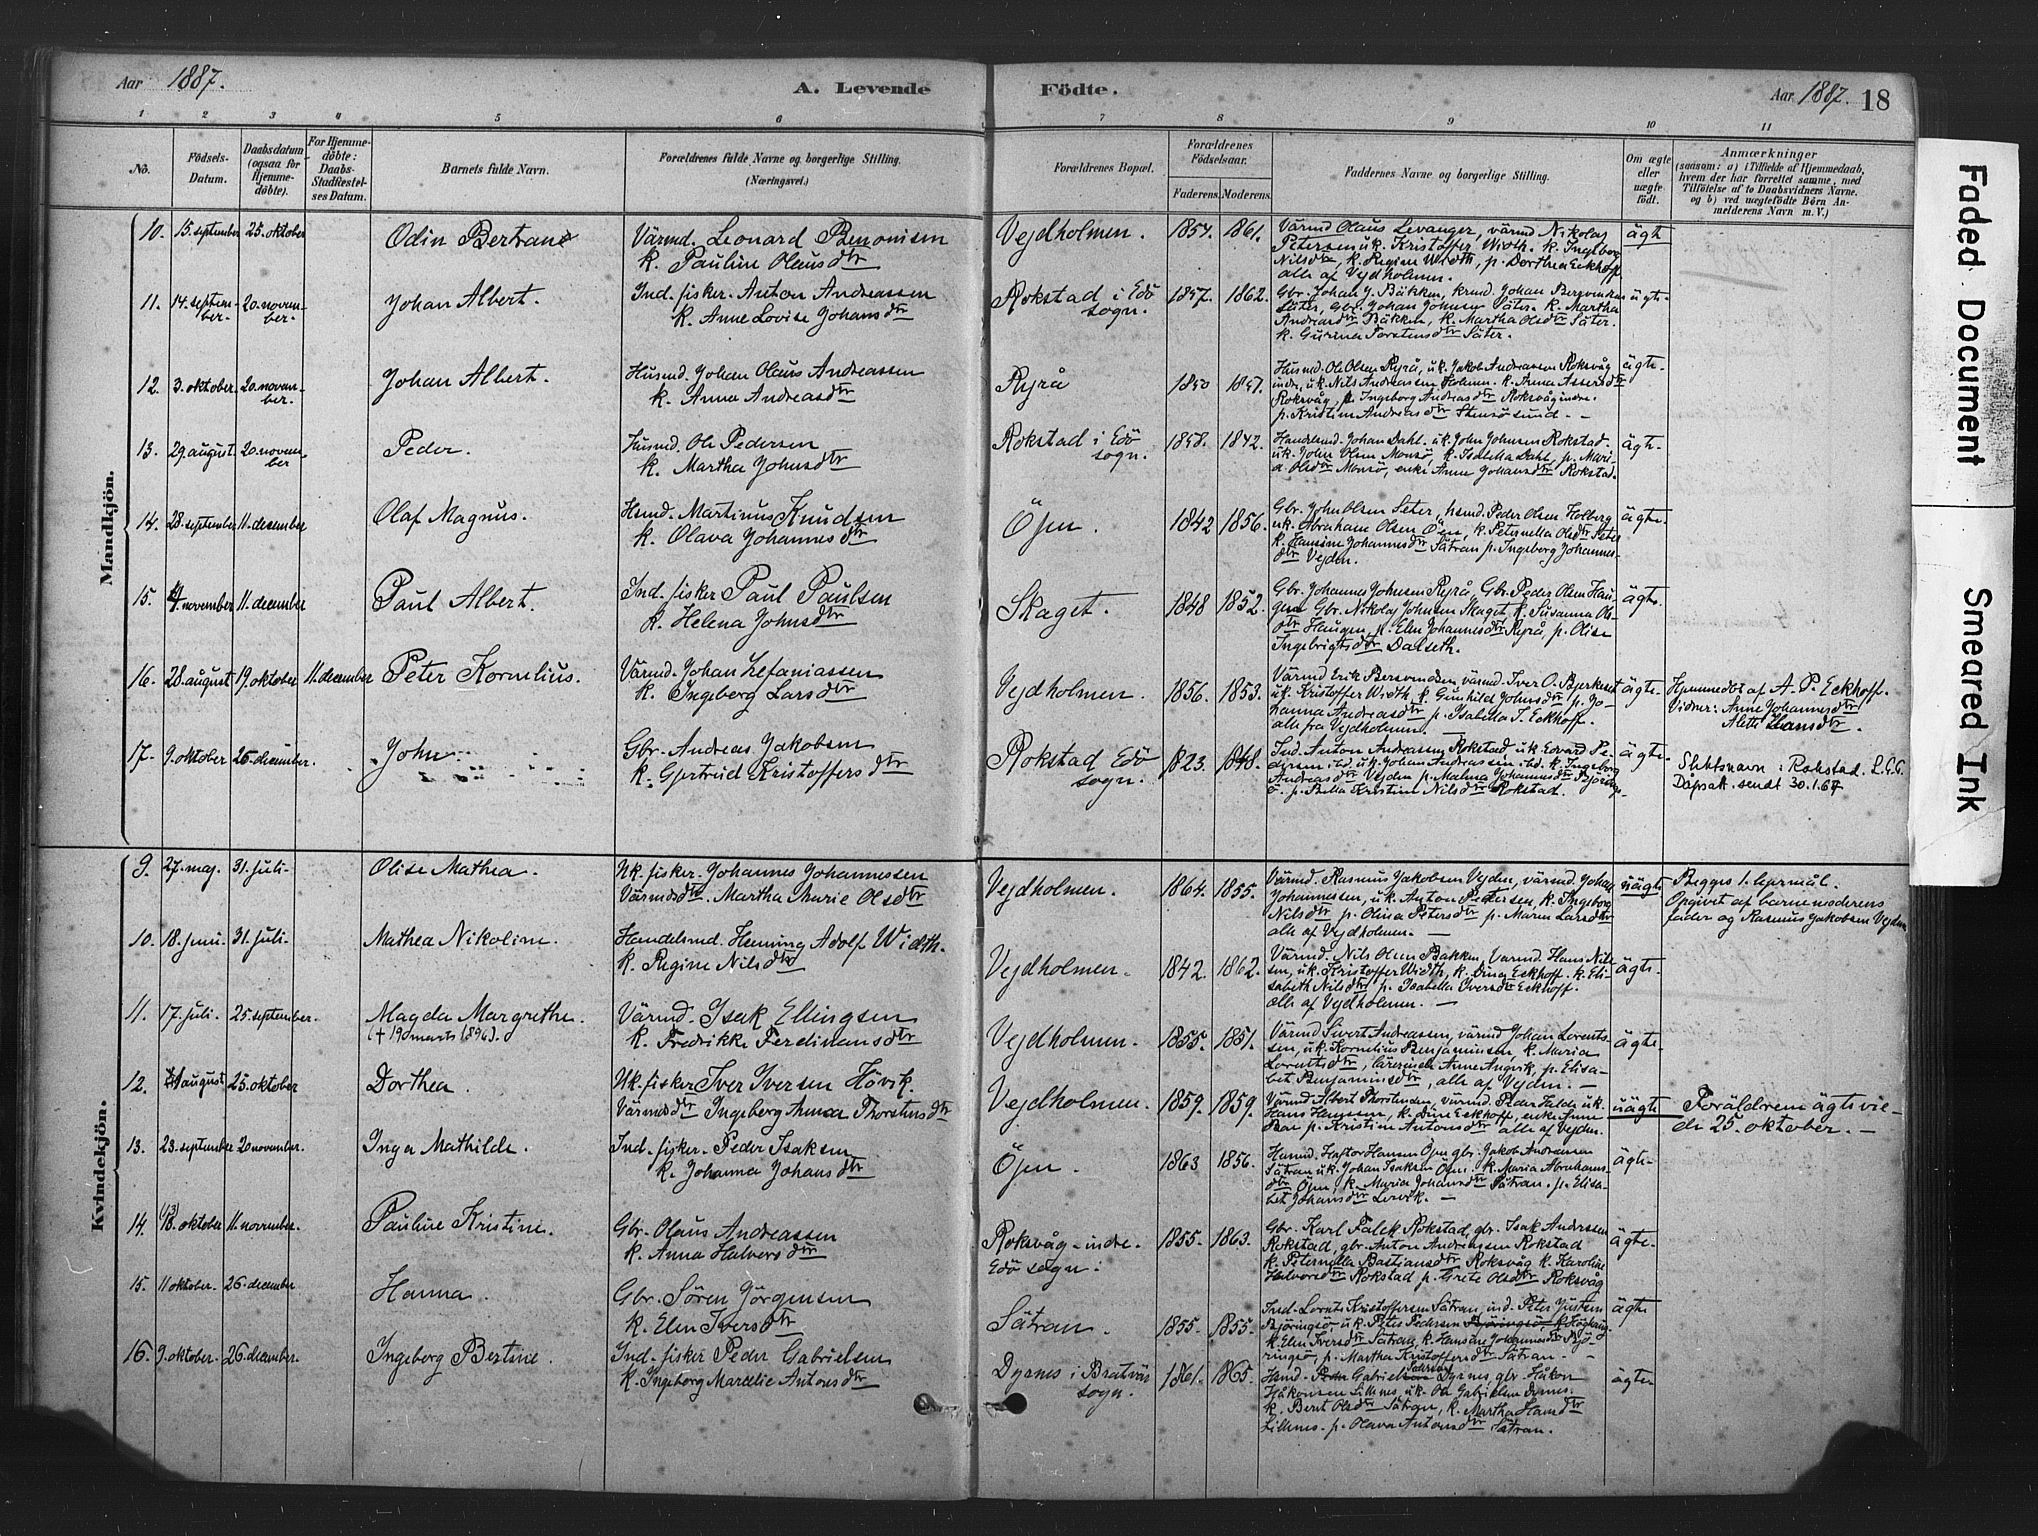 Aar 1887.
A. Levende
Födte.
Aar 1887. 18
1 2 3 4 5 6 7 8 9 10 11
No.
Födsels-
Datum.
Daabsdatum
(ogsaa for
Hjemme-
döbte).
For Hjemme-
döbte:
Daabs-
Stadfestel-
ses Datum.
Barnets fulde Navn.
Forældrenes fulde Navne og borgerlige Stilling.
(Næringsvei.)
Forældrenes Bopæl.
Forældrenes
Födselsaar.
Faderens. Moderens.
Faddernes Navne og borgerlige Stilling.
Om ægte
eller
uægte
födt.
Anmærkninger
(saasom: a) i Tilfælde af Hjemmedaab,
hvem der har forrettet samme, med
Tilföielse af to Daabsvidners Navne.
og b) ved uægtefödte Börn An-
melderens Navn m. V.)
Mandkjön.
10. 15. september 25. oktober Odin Bertran Värmd. Leonard Benonisen
k. Pauline Olausdtr
Vejdholmen. 1854. 1861. Värmd Olaus Levanger, värmd Nikolaj
Petersen u.k. Kristoffer Width. k. Ingeborg
Nilsdtr, k. Regine Width, p. Dorthea Eckhoff
alle af Vejdholmen.
ägt
11. 14. septem-
ber. 20. novem-
ber. Johan Albert. Ind. fisker. Anton Andreassen
k. Anne Lovise Johansdtr
Rokstad i Edö
sogn. 1857. 1862. Gbr. Johan J. Bäkken, Johan
Säter, Gbr. Johan Johnsen Säter. k. Martha
Andreasdtr Bäkken, k. Martha Olsdtr Säter.
k. Gurina Torstensdtr Säter.
ägte
12. 3. oktober. 20. novem-
ber. Johan Albert. Husmd. Johan Olaus Andreassen
k. Anna Andreasdtr
Ryrå 1850 1857. Husmd. Ole Olsen Ryrå, u.k. Jakob Andreassen Roksvåg
indre, u.k. Nils Andreassen Holmen. k. Anna Assersdtr
Roksvåg, p. Ingeborg Andreasdtr Roksvåg indre.
p. Kristine Andreasdtr Stensösund. -
ägte.
13. 29. august. 20. novem-
ber Peder. Husmd. Ole Pedersen
k. Martha Johnsdtr
Rokstad i Edö
sogn. 1858. 1842. Handelsmd. Johan Dahl. u.k. John Johnsen Rokstad.
u.k. John Olsen Monsö k. Isabella Dahl, p. Mari-
a Olsdtr Monsö, enke Anne Johansdtr Rokstad.
ägte.
14. 28. september 11. december Olaf Magnus. Husmd. Martinus Knudsen
k. Olava Johannesdtr
Öjen. 1842 1856. Gbr. John Olsen Seter, husmd. Peder Olsen Holberg
u.k. Abraham Olsen Öjen, k. Peternella Olsdtr Seter
k. Hansine Johannesdtr Sätran p. Ingeborg Johannes-
dtr Vejden.
ägte.
15. 4. november 11. december Paul Albert. Ind. fisker Paul Paulsen
k. Helena Johnsdtr
Skaget. 1848 1852. Gbr. Johannes Johnsen Ryrå, Gbr. Peder Olsen Hau-
gen Gbr. Nikolaj Johnsen Skaget, k. Susanna Ols-
dtr Haugen, p. Elen Johannesdtr Ryrå, p. Olise
Ingebrigtsdtr Dalseth.
ägte.
16. 28. august 19. oktober 11. december Peter Kornelius. Värmd. Johan Zefaniassen
k. Ingeborg Larsdtr
Vejdholmen. 1856. 1853. Värmd Erik Bersvendsen värmd. Iver O. Bjerkeset
u.k. Kristoffer Width, k. Gunhild Johnsdtr p. Jo-
hanna Andreasdtr p. Isabella I. Eckhoff.
alle fra Vejdholmen.
ägte. Hjemmedöbt af A. P. Eckhoff.
Vidner: Anne Johannesdtr
Alette Hansdtr.
17. 9. oktober 26. december. John. Gbr. Andreas Jakobsen
k. Gjertrud Kristoffersdtr
Rokstad Edö
sogn. 1823. 1848. Ind. Anton Andreassen Rokstad u.k. Edvard Pe-
dersen ibd. u.k. Johan Andreassen ibd. k. Ingeborg
Andreasdtr Vejden p. Malina Johannesdtr Björings-
ö. p. Bella Kristine Nilsdtr Rokstad.
ägte. Slektsnavn: Rokstad. L.G.G.
Dåpsatt. sendt 30.1.67
Kvindekjön.
9. 27. maj. 31. juli. Olise Mathea. Uk. fisker. Johannes Johannessen
Värmdsdtr. Martha Marie Olsdtr
Vejdholmen. 1864. 1855. Värmd. Rasmus Jakobsen Vejden, värmd. Johan
Johannessen, u.k. Anton Pettersen, k. Ingeborg
Nilsdtr p. Olina Petersdtr p. Maren Larsdtr
alle af Vejdholmen. -
uägte Begges 1. lejermål.
Opgivet af barnemoderens
fader og Rasmus Jakobsen Vejden
10. 18. juni. 31. juli. Mathea Nikoline. Handelsmd. Heming Adolf Width.
k. Regine Nilsdtr
Vejdholmen. 1842. 1862. Värmd. Nils Olsen Bakken, Värmd. Hans Nils-
sen, u.k. Kristoffer Width, k. Dina Eckhoff. k. Eli-
sabeth Nilsdtr p. Isabella Iversdtr Eckhoff.
alle af Vejdholmen. -
ägte.
11. 17. juli. 25. september. Magda Margrethe.
(† 19 marts 1896). Värmd. Isak Ellingsen
k. Fredrikke Ferdinansdtr
Vejdholmen. 1855. 1851. Värmd Sivert Andreassen, värmd Johan Lorents-
sen, u.k. Kornelius Benjaminsen, k. Maria
Lorentsdtr, lärerinde Anne Angvik, p. Elisa-
bet Benjaminsdtr, alle af Vejden. -
ägte.
12. august 25. oktober Dorthea. Uk. fisker Iver Iversen Hövik.
Värmdsdtr Ingeborg Anna Thorstensdtr
Vejdholmen. 1859. 1859. Värmd. Albert Thorstensen, värmd. Peder Falde u.k.
Hans Hanssen, k. Dina Eckhoff, enke Anne
p. Kristine Antonsdtr alle af Vejden.
uägte Foräldrene ägtevie-
de 25. oktober. -
13. 23. september 20 november. Inga Mathilde. Ind. fisker. Peder Isaksen
k. Johanna Johansdtr
Öjen. 1863 1856. Husmd. Haftor Hansen Öjen gbr. Jakob Andreassen
Sätran u.k. Johan Isaksen Öjen. k. Maria Abrahams-
dtr Öjen, k. Maria Johansdtr Sätran. p. Elisa-
bet Johansdtr Lervik. -
ägte.
14. 13. oktober 11. november. Pauline Kristine. Gbr. Olaus Andreassen
k. Anna Halvorsdtr
Roksvåg-indre.
Edö sogn. 1855. 1863. Gbr. Karl Falck Rokstad, gbr. Isak Andersen
Rokstad, gbr. Anton Andreassen Rokstad
k. Peternella Bastiansdtr Roksvåg k. Karoline
Halvorsdtr Rokstad p. Grete Olsdtr Roksvåg
ägte.
15. 11 oktober. 26. december Hanna. Gbr. Sören Jörgensen
k. Elen Iversdtr
Sätran. 1855. 1855. Ind. Lornts Kristoffersen Sätran, ind. Peter Justsen
Björingsö, u.k. Peter Pedersen Björingsö,
k. Elen Iversdtr Sätran, k. Hansine Johannesdtr Bjö-
ringsö, p. Martha Kristoffersdtr Sätran. -
ägte
16. 9. oktober. 26. december. Ingeborg Bertine. Ind. fisker Peder Gabrielsen
k. Ingeborg Marcelie Antonsdtr
Dyrnes i Bratvär
sogn. 1861. 1865. Husmd. Gabriel Dyrnes, gbr. Håkon
Håkonsen Lillenes, u.k. Ole Gabrielsen Dyrnes.
k. Berit Olsdtr Sätran, k. Martha Hansdtr
Lillenes. p. Olava Antonsdtr Sätran.
ägte.
Faded Document
Smeared Ink